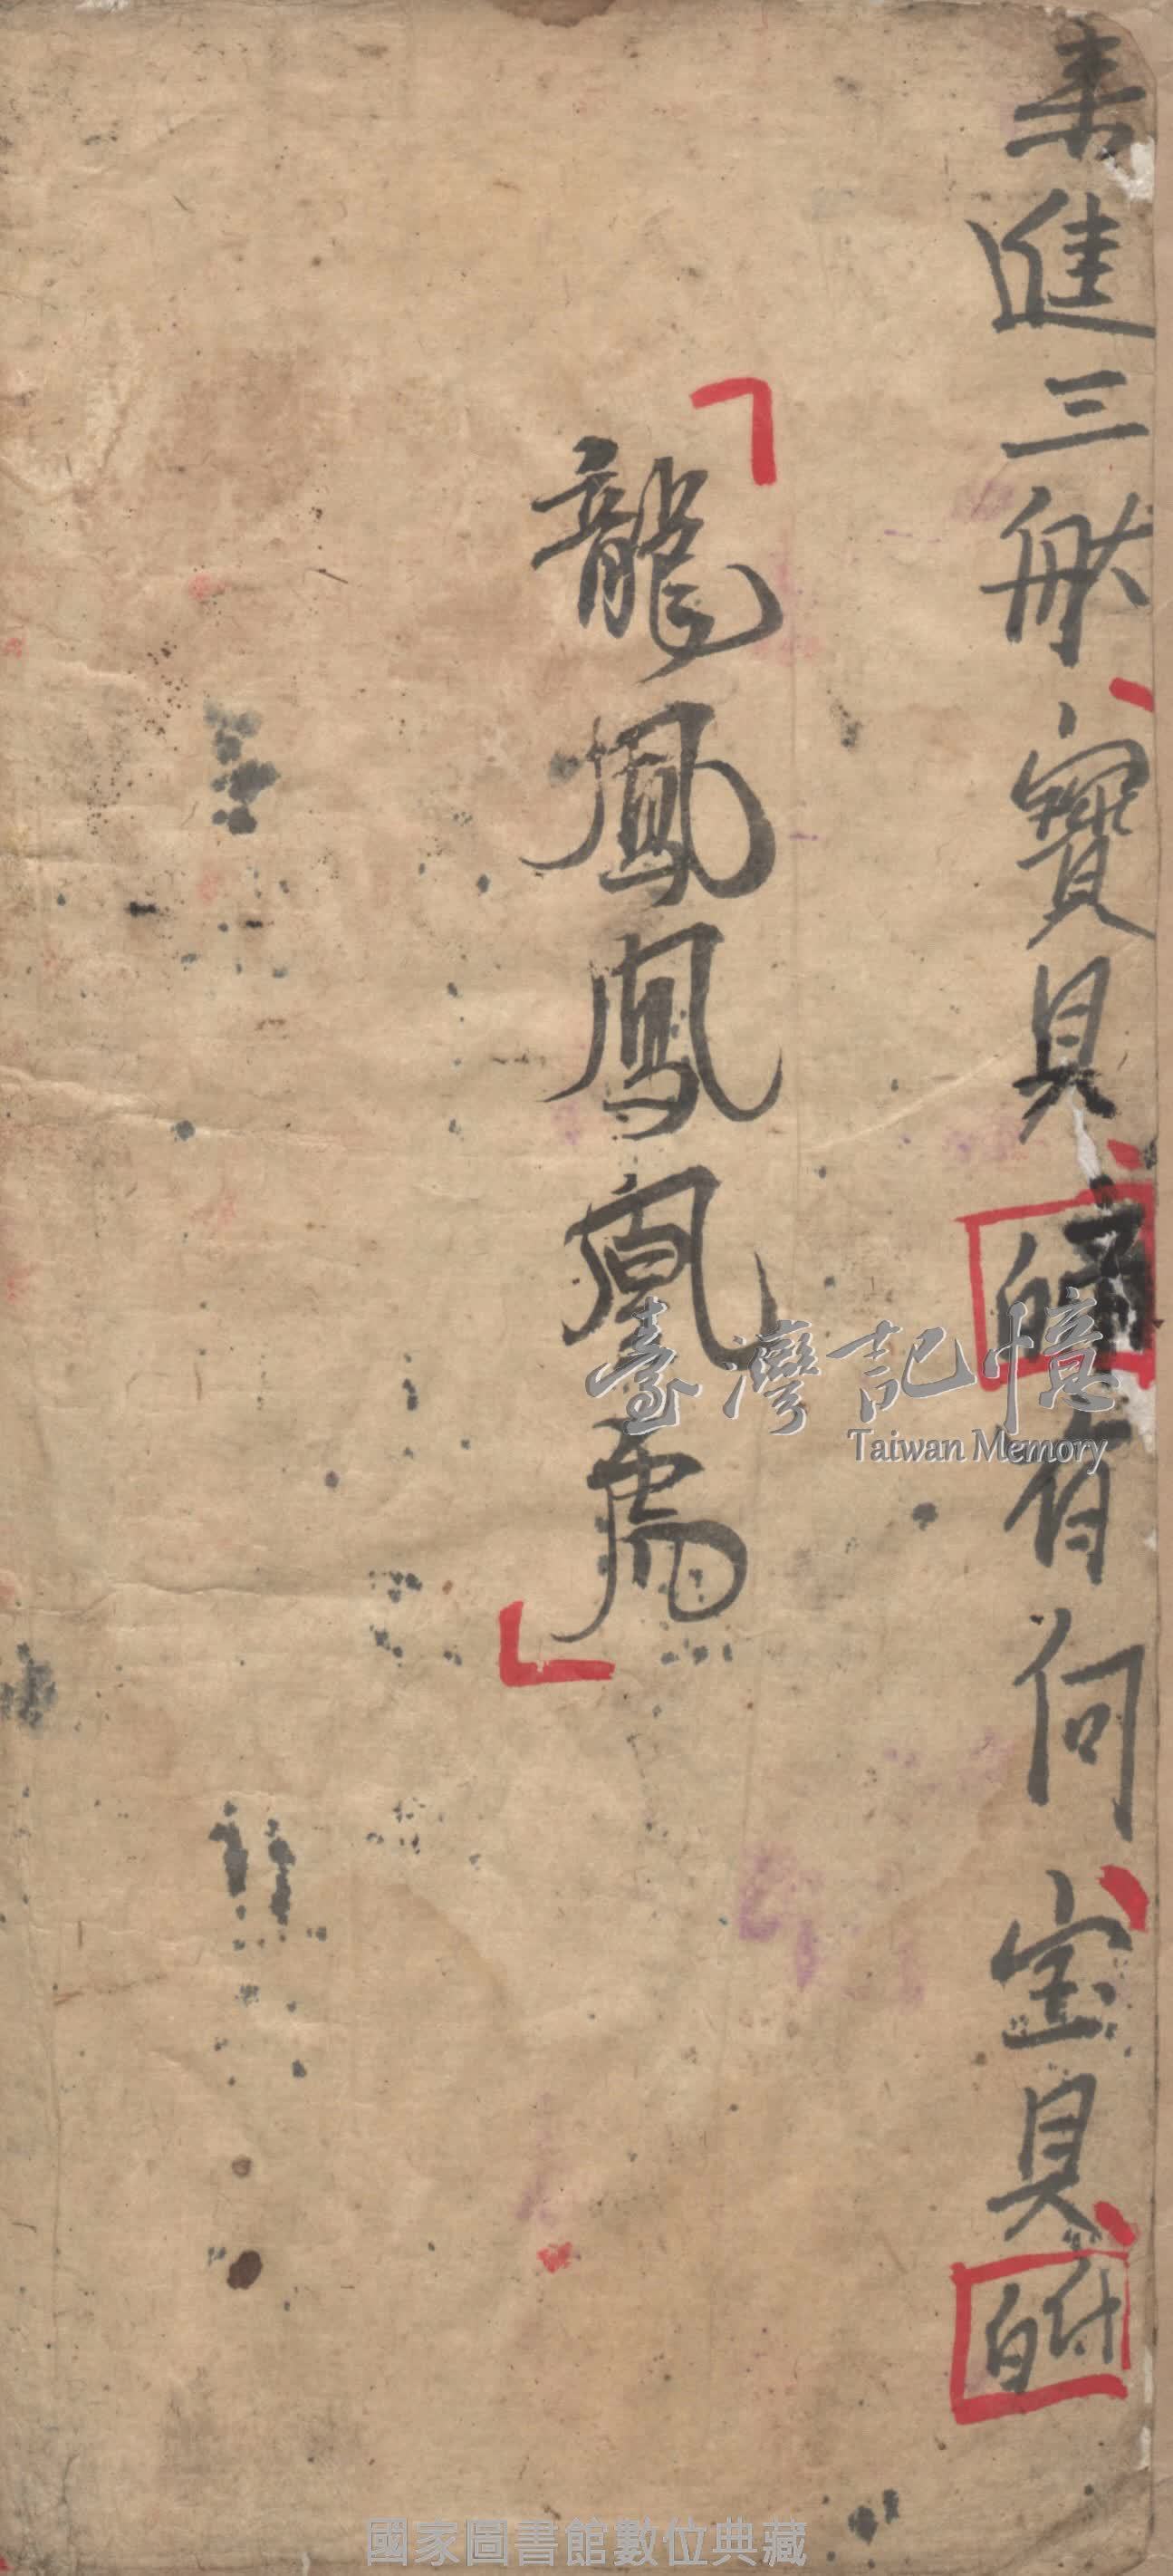 来進三般寶貝
有何宝貝
付白
龍鳳鳳凰
臺灣記憶
Taiwan Memory
國家圖書館數位典藏